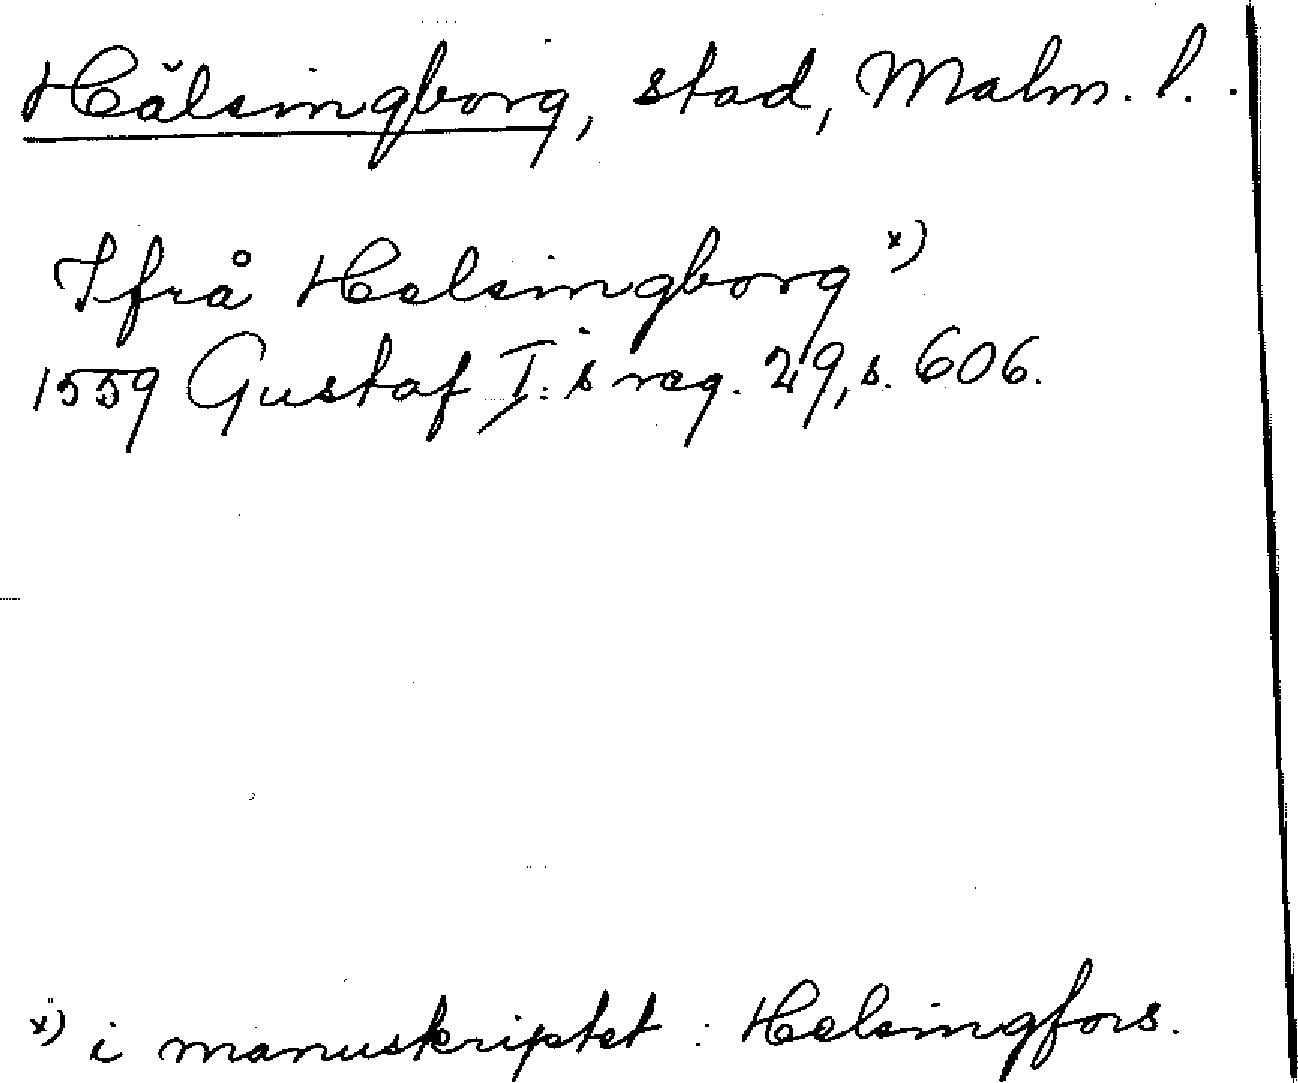 Hälsingborg, stad, Malm. l..
Ifrå Helsingborg x)
1559 Gustaf I:s reg. 29, s. 606.
x) i manuskriptet: Helsingfors.